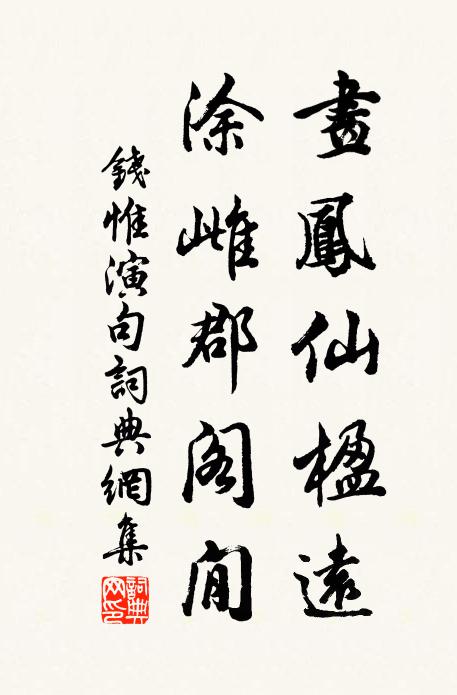 畫鳳仙楹遠
涂雌郡閣閒
錢惟演句詞典網集
詞典网印